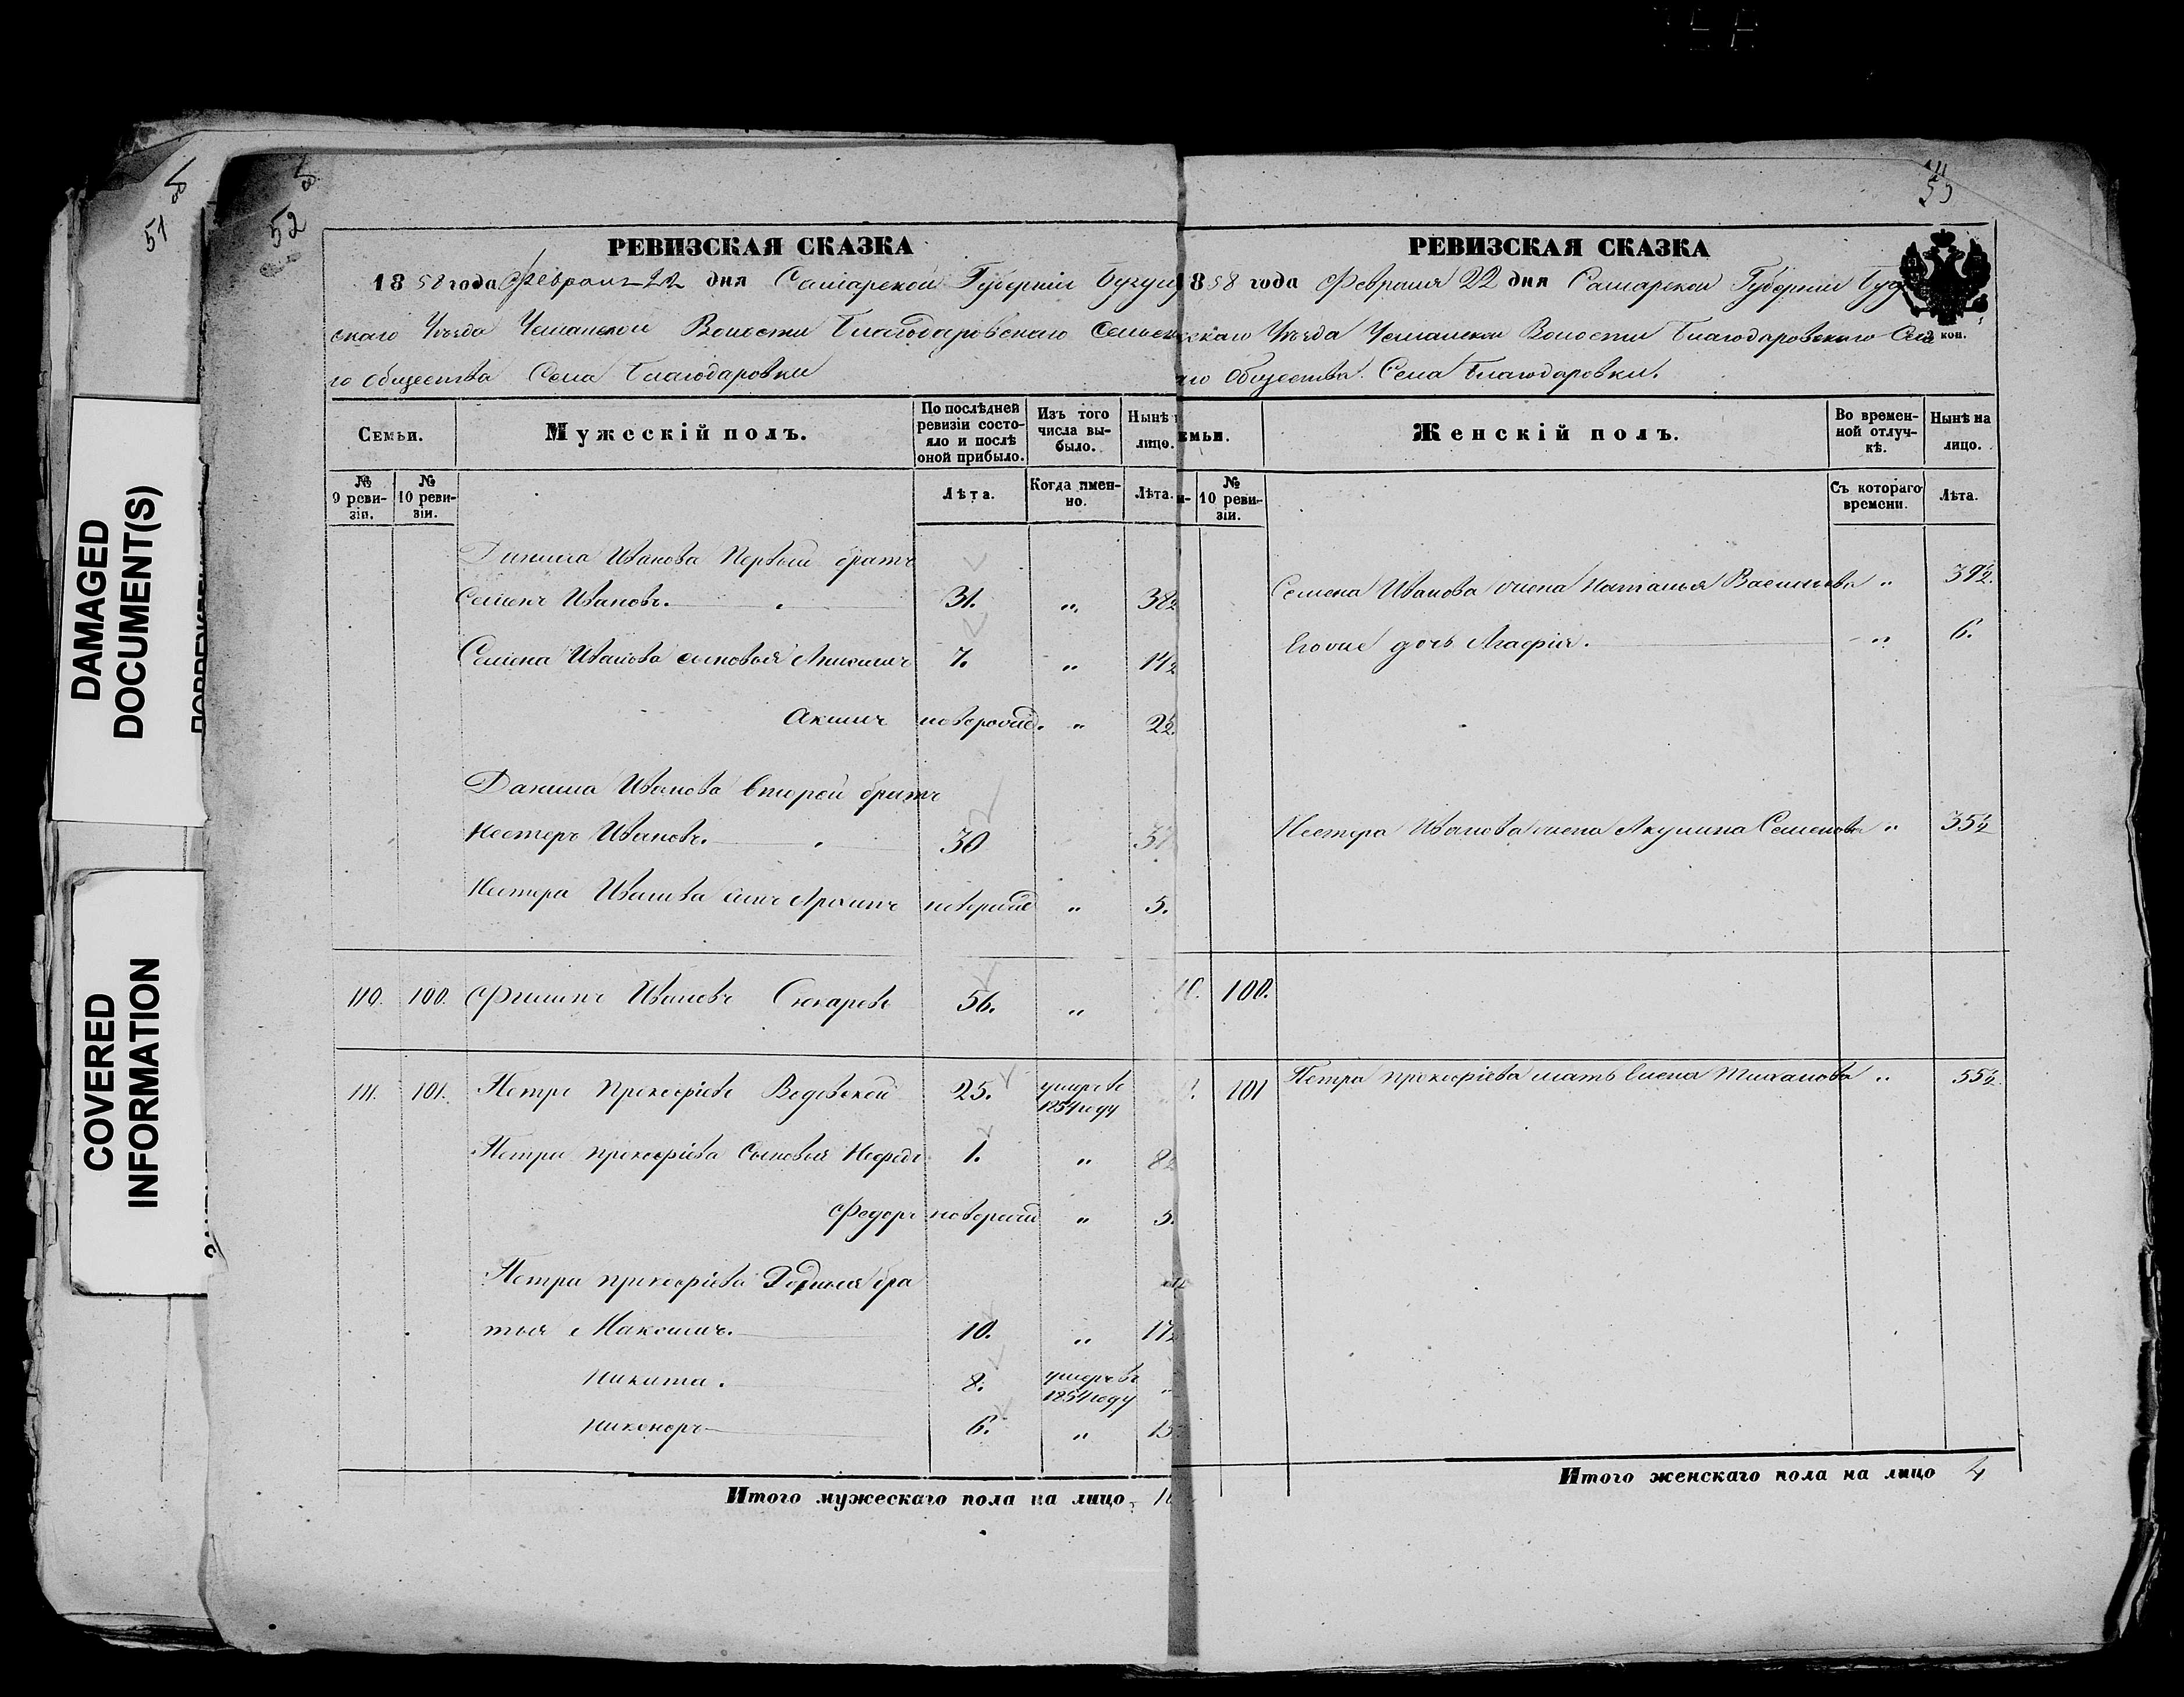 51
52
DAMAGED
DOCUMENT(S)
COVERED
INFORMATION
РЕВИЗСКАЯ СКАЗКА
1858 года Февраля 22 дня Самарской Губерніи Бугуру
скаго Уѣзда Волости Благодаровскаго Сельск
го Общества Села Благодаровки
Семьи. Мужескій полъ. По послѣдней ревизіи состояло и послѣ оной прибыло. Изъ того числа выбыло. Нынѣ лицо.
№ 9 ревизіи. № 10 ревизіи. Лѣта. Когда именно. Лѣта.
Данила Иванова Первый братъ
Семенъ Ивановъ. 31. „ 38½
Семена Иванова сыновья 7. „ 14½
новорожд. „ 2½
Данила Иванова второй братъ
Нестеръ Ивановъ. 30 37
Нестера Иванова сынъ новорожд „ 5.
110. 100. Филипъ Ивановъ 56. „
111. 101. Петръ Прокофіевъ 25. умеръ въ 1854 году
Петра Прокофіева Сыновья 1. „ 8½
Федоръ новорожд „ 5.
Петра Прокофіева Родныя бра
тья Максимъ. 10. „ 17½
Никита. 8. умеръ въ 1854 году „
Никоноръ 6. „ 15
Итого мужескаго пола на лицо
РЕВИЗСКАЯ СКАЗКА
858 года Февраля 22 дня Самарской Губерніи Буг
скаго Уѣзда Волости Благодаровскаго Сел
го Общества Села Благодаровки.
2 коп.
емьи. Женскій полъ. Во временной отлучкѣ. Нынѣ на лицо.
№ 10 ревизіи. Съ котораго времени. Лѣта.
Семена Иванова жена Наталья Васильева „ 39½.
Еговая дочь Агафія. „ 6.
Нестера Иванова жена Акулина Семенова „ 35½
100.
101 Петра Прокофіева мать Елена „ 55½
Итого женскаго пола на лицо 4